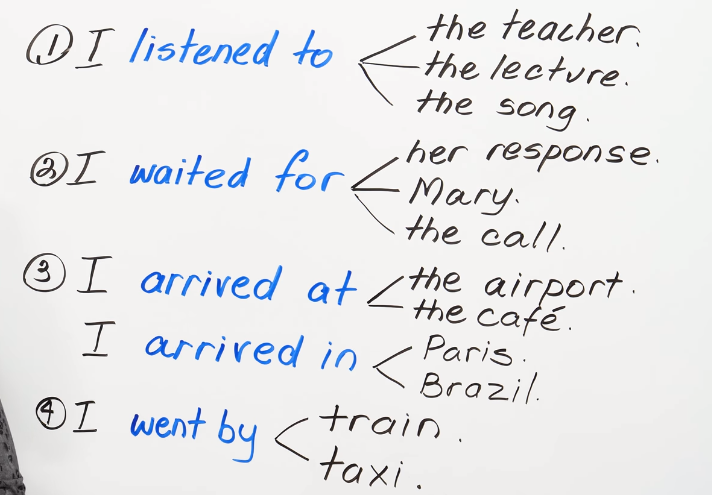 ① I listened to the teacher.
the lecture.
the song.
② I waited for her response.
Mary.
the call.
③ I arrived at the airport.
the café.
I arrived in Paris.
Brazil.
④ I went by train.
taxi.